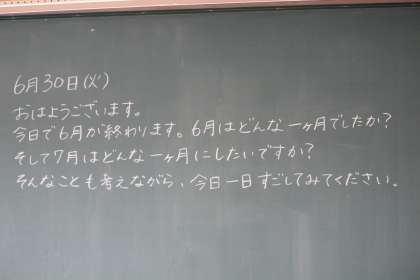 6月30日(火)
おはようございます。
今日で6月が終わります。6月はどんな一ヶ月でしたか?
そして7月はどんな一ヶ月にしたいですか?
そんなことも考えながら、今日一日すごしてみてください。